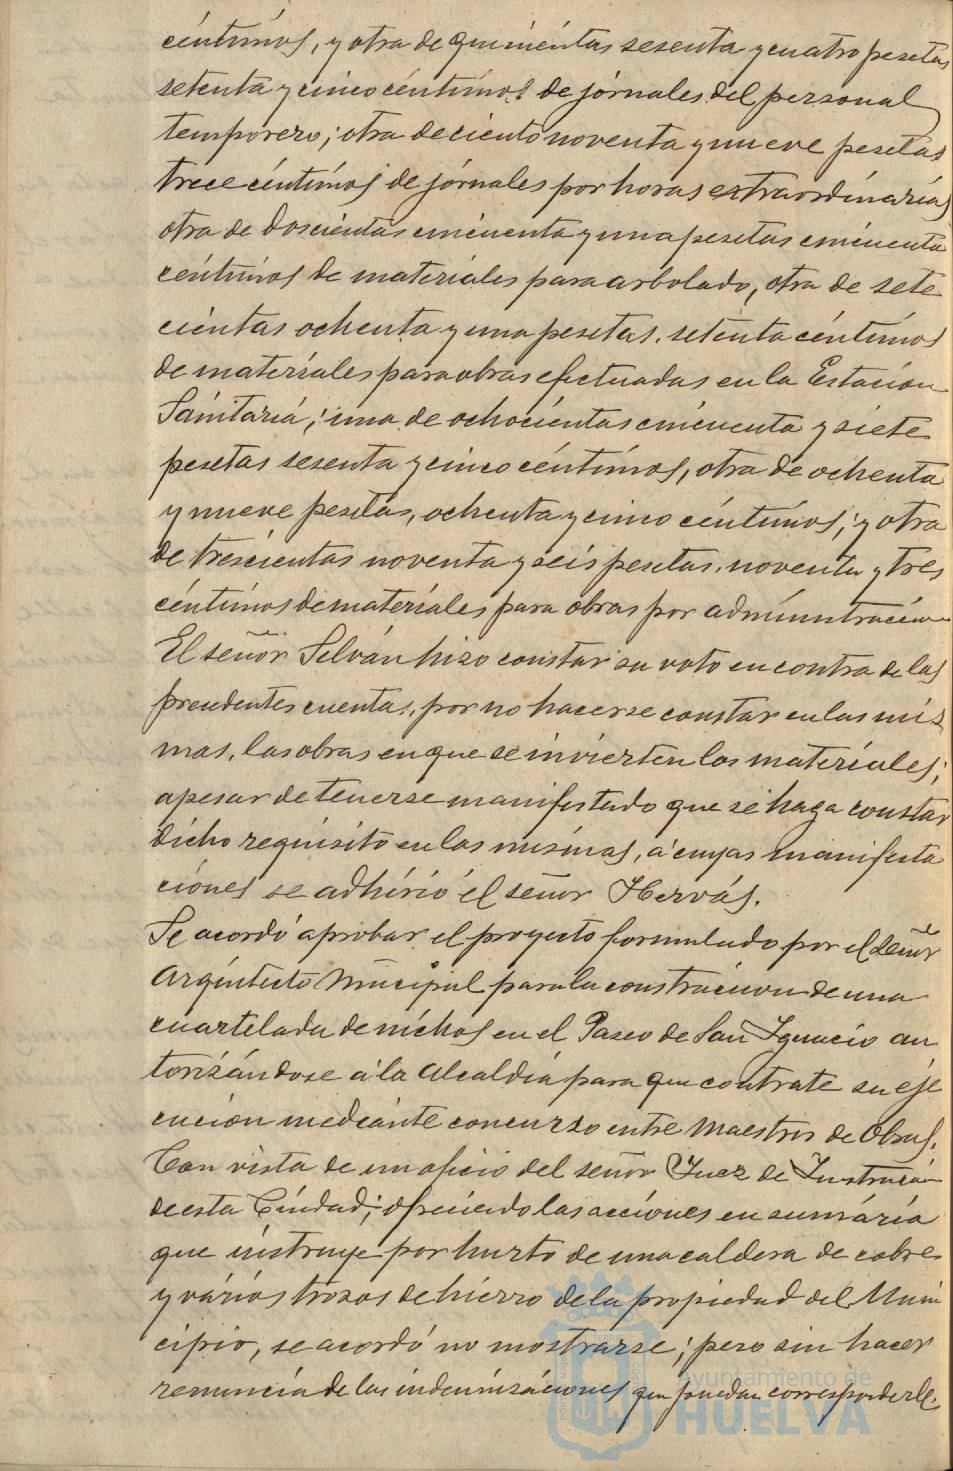 céntimos, y otra de quinientas sesenta y cuatro pesetas
setenta y cinco céntimos de jórnales del personal
temporero; otra de ciento noventa y nueve pesetas
trece céntimos de jórnales por horas extraordinarias
otra de doscientas cincuenta y una pesetas cincuenta
céntimos de materiales para arbolado, otra de sete
cientas ochenta y una pesetas, setenta céntimos
de materiales para obras efectuadas en la Estación
Sanitaria; una de ochocientas cincuenta y siete
pesetas sesenta y cinco céntimos, otra de ochenta
y nueve pesetas, ochenta y cinco céntimos; y otra
de trescientas noventa y seis pesetas, noventa y tres
céntimos de materiales para obras por administración
El señor Selván hizo constar su voto en contra de las
precedentes cuentas, por no hacerse constar en las mis
mas, las obras en que se invierten los materiales;
apesar de tenerse manifestado que se haga constar
dicho requisito en las mismas, á cuyas manifesta
ciones se adhirió el señor Hervás.
Se acordó aprobar el proyecto formulado por el señor
Arquitecto Municipal para la construccion de una
cuartelada de nichos en el Paseo de San Ignacio au
torizándose á la Alcaldía para que contrate su eje
cución mediante concurso entre Maestros de Obras.
Con vista de un oficio del señor Juez de Instrucción
de esta Ciudad; ofreciendo las acciones en sumária
que instruye por hurto de una caldera de cobre
y vários trozos de hierro de la propiedad del Muni
cipio, se acordó no mostrarse; pero sin hacer
renuncia de las indemnizaciones que puedan corresponderle.
Ayuntamiento de
HUELVA